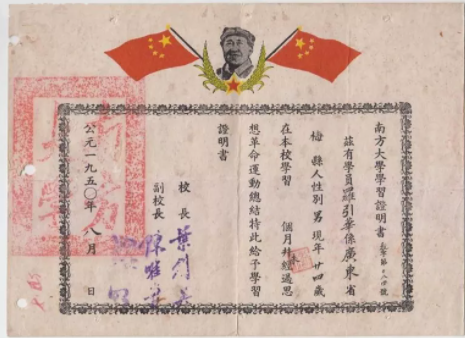 南方大學學習證明書
茲有學員羅引華係廣東省
梅縣人性別男現年廿四歲
在本校學習 個月并經過思
想革命運動總結特此給予學習
證明書
校長葉劍英
副校長陳唯實
公元一九五〇年八月 日